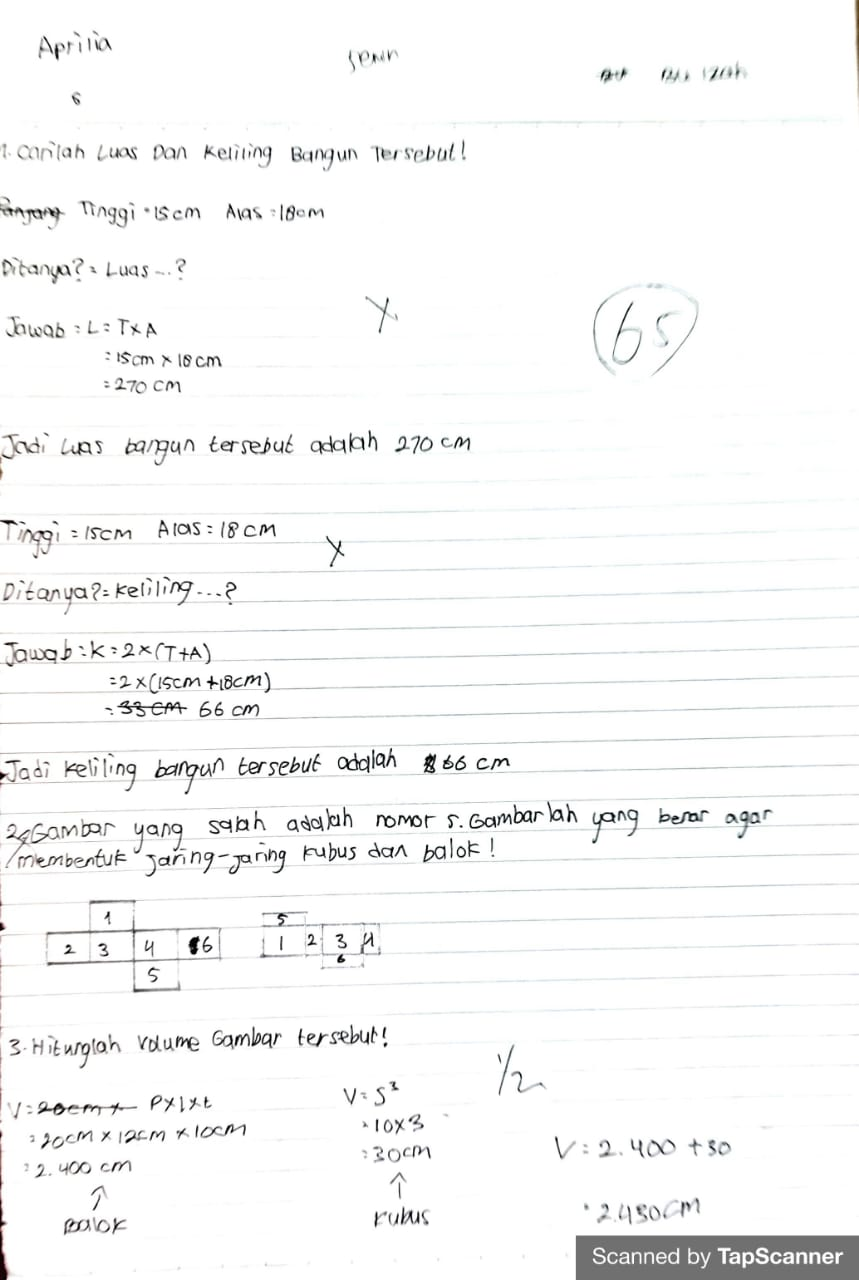 Aprilia
Senin
6
1. Carilah Luas Dan Keliling Bangun Tersebut!
Panjang Tinggi = 15 cm Alas = 18 cm
Ditanya? = Luas ...?
Jawab : L = T x A
= 15 cm x 18 cm
= 270 cm
X
65
Jadi Luas bangun tersebut adalah 270 cm
Tinggi = 15 cm Alas = 18 cm
X
Ditanya? = Keliling ...?
Jawab : K = 2 x (T+A)
= 2 x (15 cm + 18 cm)
= 33 cm 66 cm
Jadi Keliling bangun tersebut adalah 66 cm
2. Gambar yang salah adalah nomor 5. Gambarlah yang benar agar
membentuk jaring-jaring kubus dan balok!
1
2 3 4 6
5
5
1 2 3 4
6
3. Hitunglah Volume Gambar tersebut!
1/2
V = 20 cm x P x l x t
= 20 cm x 12 cm x 10 cm
= 2.400 cm
Balok
V = S³
= 10 x 3
= 30 cm
Kubus
V = 2.400 + 30
= 2.430 cm
Scanned by TapScanner